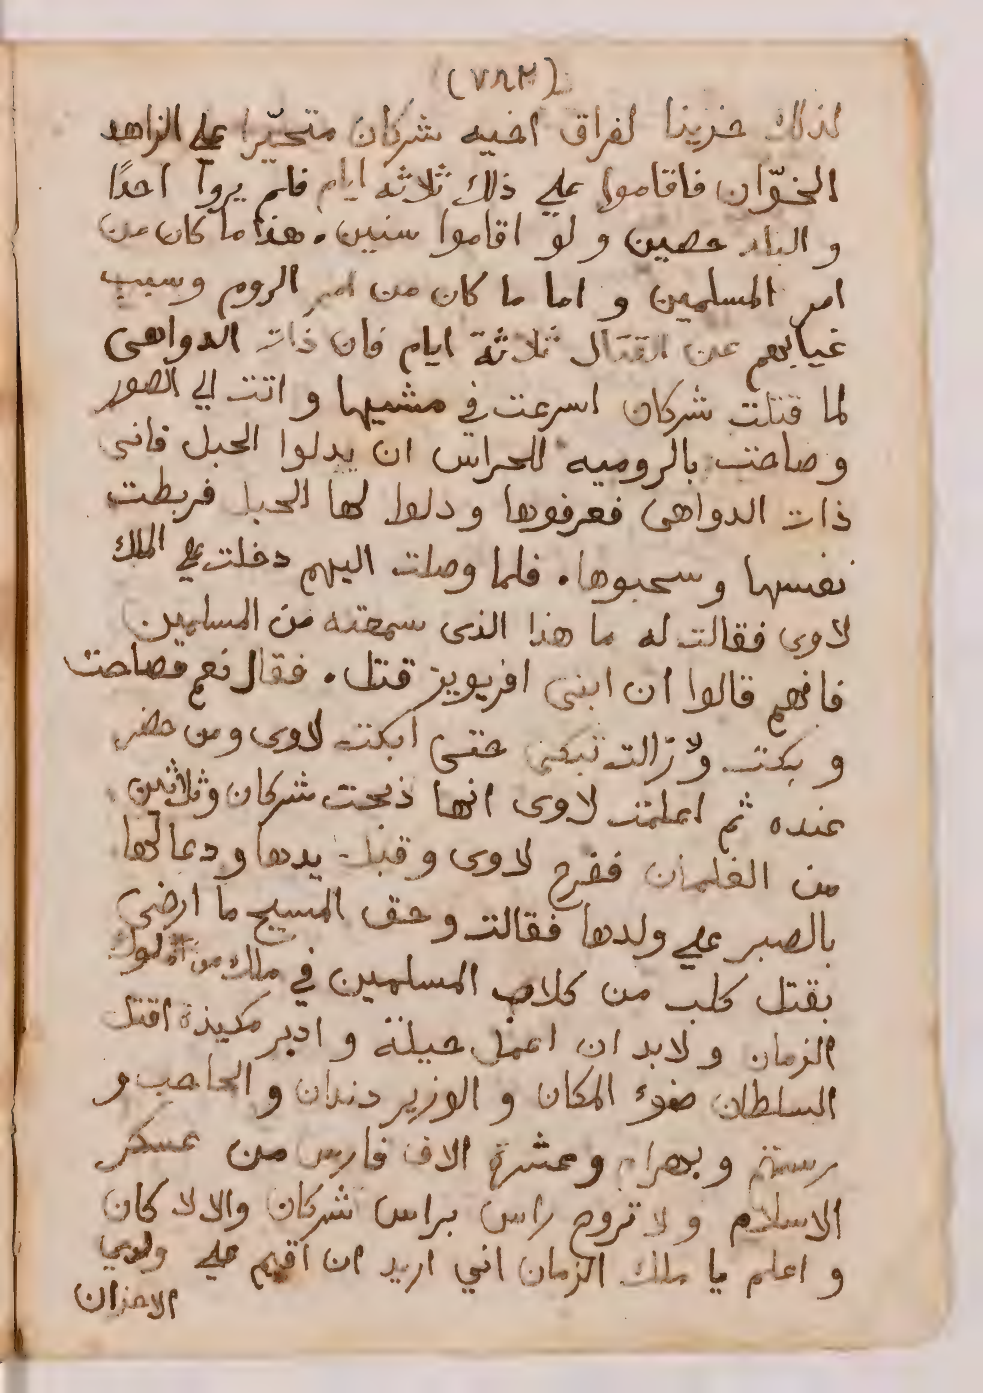 (٧٨٣)
لذلك حزينا لفراق اخيه شركان متحيّرا علي الزاهد
الخوّان فاقاموا علي ذلك ثلاثه ايام فلم يروا احدًا
و البلد حصين و لو اقاموا سنين. هذا ما كان من
امر المسلمين و اما ما كان من امر الروم و سبب
غيابهم عن القتال ثلاثة ايام فان ذات الدواهى
لما قتلت شركان اسرعت في مشيها و اتت الي الصور
و صاحت بالروميه للحراس ان يدلوا الحبل فانى
ذات الدواهى فعرفوها و دلوا لها الحبل فربطت
نفسها و سحبوها. فلما وصلت اليهم دخلت علي الملك
لاوى فقالت له ما هذا الذى سمعته من المسلمين
فانهم قالوا ان ابنى افريويز قتل. فقال نعم فصاحت
و بكت ولا زالت تبكى حتى ابكت لاوى و من حضر
عنده ثم اعلمت لاوى انها ذبحت شركان وثلاثين
من الغلمان ففرح لاوى و قبل يدها و دعا لها
بالصبر علي ولدها فقالت و حق المسيح ما ارضى
بقتل كلب من كلاب المسلمين في ملك من ملوك
الزمان و لابد ان اعمل حيلة و ادبر مكيدة اقتل
السلطان ضوء المكان و الوزير دندان و الحاجب و
رستم و بهرام و عشرة الاف فارس من عسكر
الاسلام و لا تروح راس براس شركان والا لا كان
و اعلم يا ملك الزمان اني اريد ان اقيم علي ولدي
الاحزان